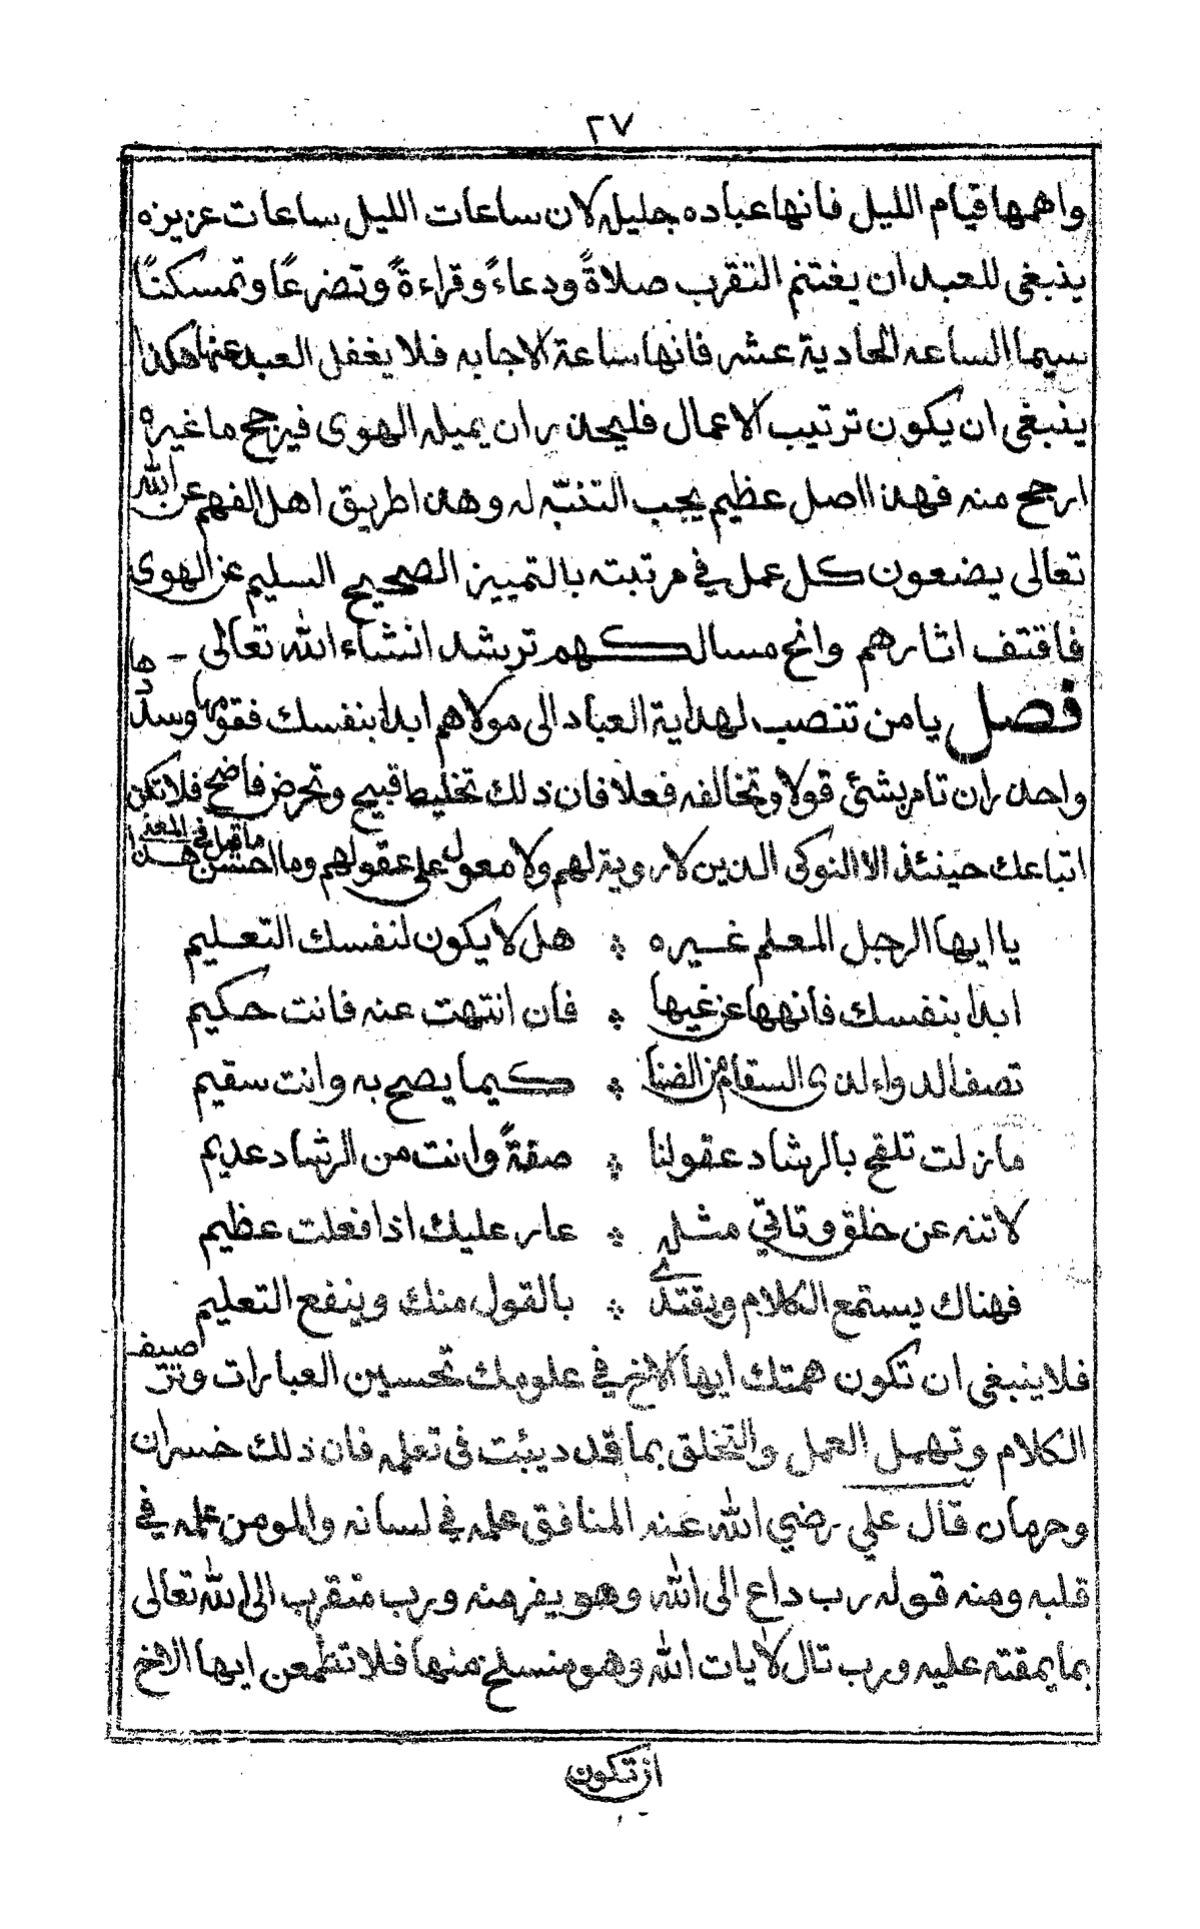 ٢٧
واهمها قيام الليل فانها عباده جليله لان ساعات الليل ساعات عزيزه
ينبغى للعبد ان يغتنم التقرب صلاةً ودعاءً وقراءةً وتضرعًا وتمسكنًا
سيما الساعه الحادية عشر فانها ساعة الاجابه فلا يغفل العبد عنها هكذا
ينبغى ان يكون ترتيب الاعمال فليحذر ان يميله الهوى فيرجح ما غيره
ارجح منه فهذا اصل عظيم يجب التنبّه له وهذا طريق اهل الفهم عن الله
تعالى يضعون كل عمل في مرتبته بالتمييز الصحيح السليم عن الهوى
فاقتف اثارهم وانح مسالكهم ترشد انشاء الله تعالى -
فصل يامن تنصب لهداية العباد الى مولاهم ابدا بنفسك فقومها وسددها
واحذر ان تامر بشئ قولا وتخالفه فعلا فان ذلك تخليط قبيح وتحرض فاضح فلا تكن
اتباعك حينئذ الا النوكى الذين لا روية لهم ولا معول على عقولهم وما احسن ما قيل في هذا المعنى
يا ايها الرجل المعلم غيره ؞ هل لا يكون لنفسك التعليم
ابدا بنفسك فانهها عن غيها ؞ فان انتهت عنه فانت حكيم
تصف الدواء لذى السقام من الضنا ؞ كيما يصح به وانت سقيم
ما زلت تلقح بالرشاد عقولنا ؞ صفةً وانت من الرشاد عديم
لا تنه عن خلق وتاتي مثله ؞ عار عليك اذا فعلت عظيم
فهناك يستمع الكلام ويقتدى ؞ بالقول منك وينفع التعليم
فلا ينبغى ان تكون همتك ايها الاخ في علومك تحسين العبارات وترصيف
الكلام وتهمل العمل والتخلق بما قد ديئبت فى تعلمه فان ذلك خسران
وحرمان قال علي رضي الله عنه المنافق علمه في لسانه والمومن علمه في
قلبه ومنه قوله رب داع الى الله وهو يفر منه ورب متقرب الى الله تعالى
بما يمقته عليه ورب تال لايات الله وهو منسلخ منها فلا تطمعن ايها الاخ
ان تكون